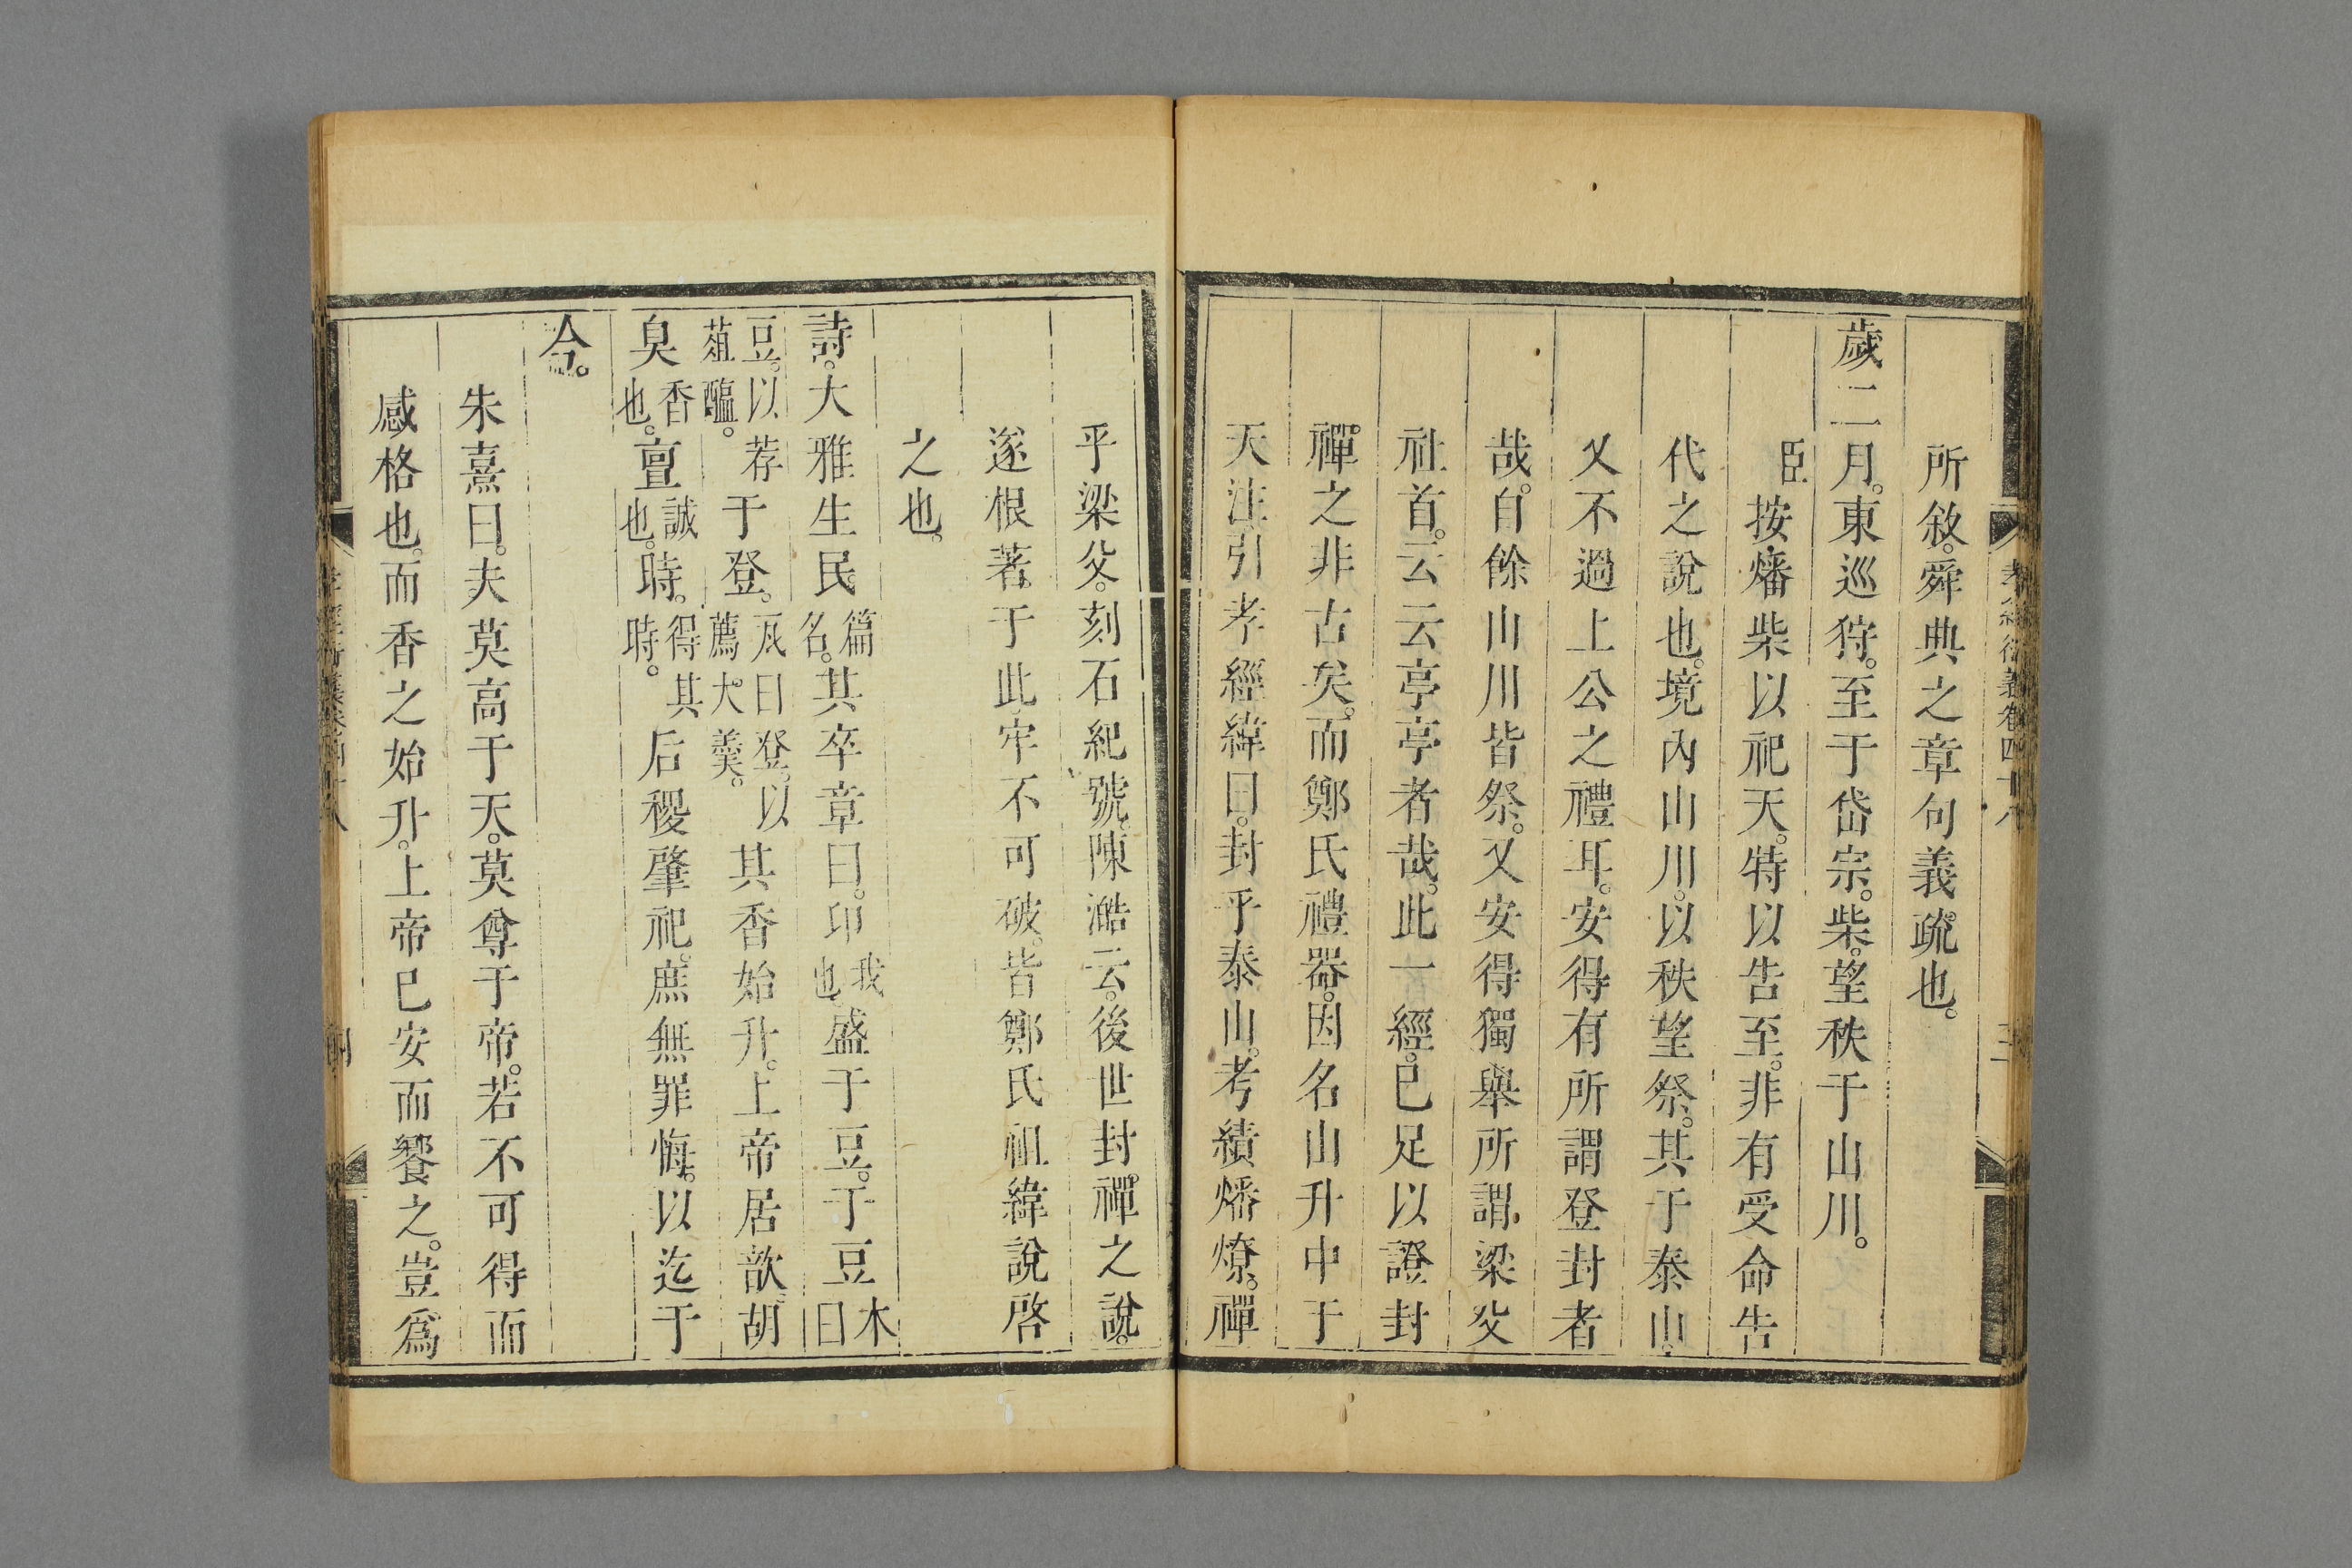 孝經衍義卷四十八
三
所敘。舜典之章句義疏也。
歲二月。東巡狩。至于岱宗。柴。望秩于山川。
臣按燔柴以祀天。特以告至。非有受命告
代之說也。境內山川。以秩望祭。其于泰山。
又不過上公之禮耳。安得有所謂登封者
哉。自餘山川皆祭。又安得獨舉所謂梁父
社首。云云亭亭者哉。此一經。已足以證封
禪之非古矣。而鄭氏禮器。因名山升中于
天注引孝經緯曰。封乎泰山。考績燔燎。禪
乎梁父。刻石紀號。陳澔云。後世封禪之說。
遂根著于此。牢不可破。皆鄭氏祖緯說啓
之也。
詩。大雅生民篇名。其卒章曰。卬我也。盛于豆。于豆木曰
豆。以荐菹醢。于登。瓦曰登。以薦大羹。其香始升。上帝居歆。胡
臭香也。亶誠也。時。得其時。后稷肇祀。庶無罪悔。以迄于
今。
朱熹曰。夫莫高于天。莫尊于帝。若不可得而
感格也。而香之始升。上帝已安而饗之。豈爲